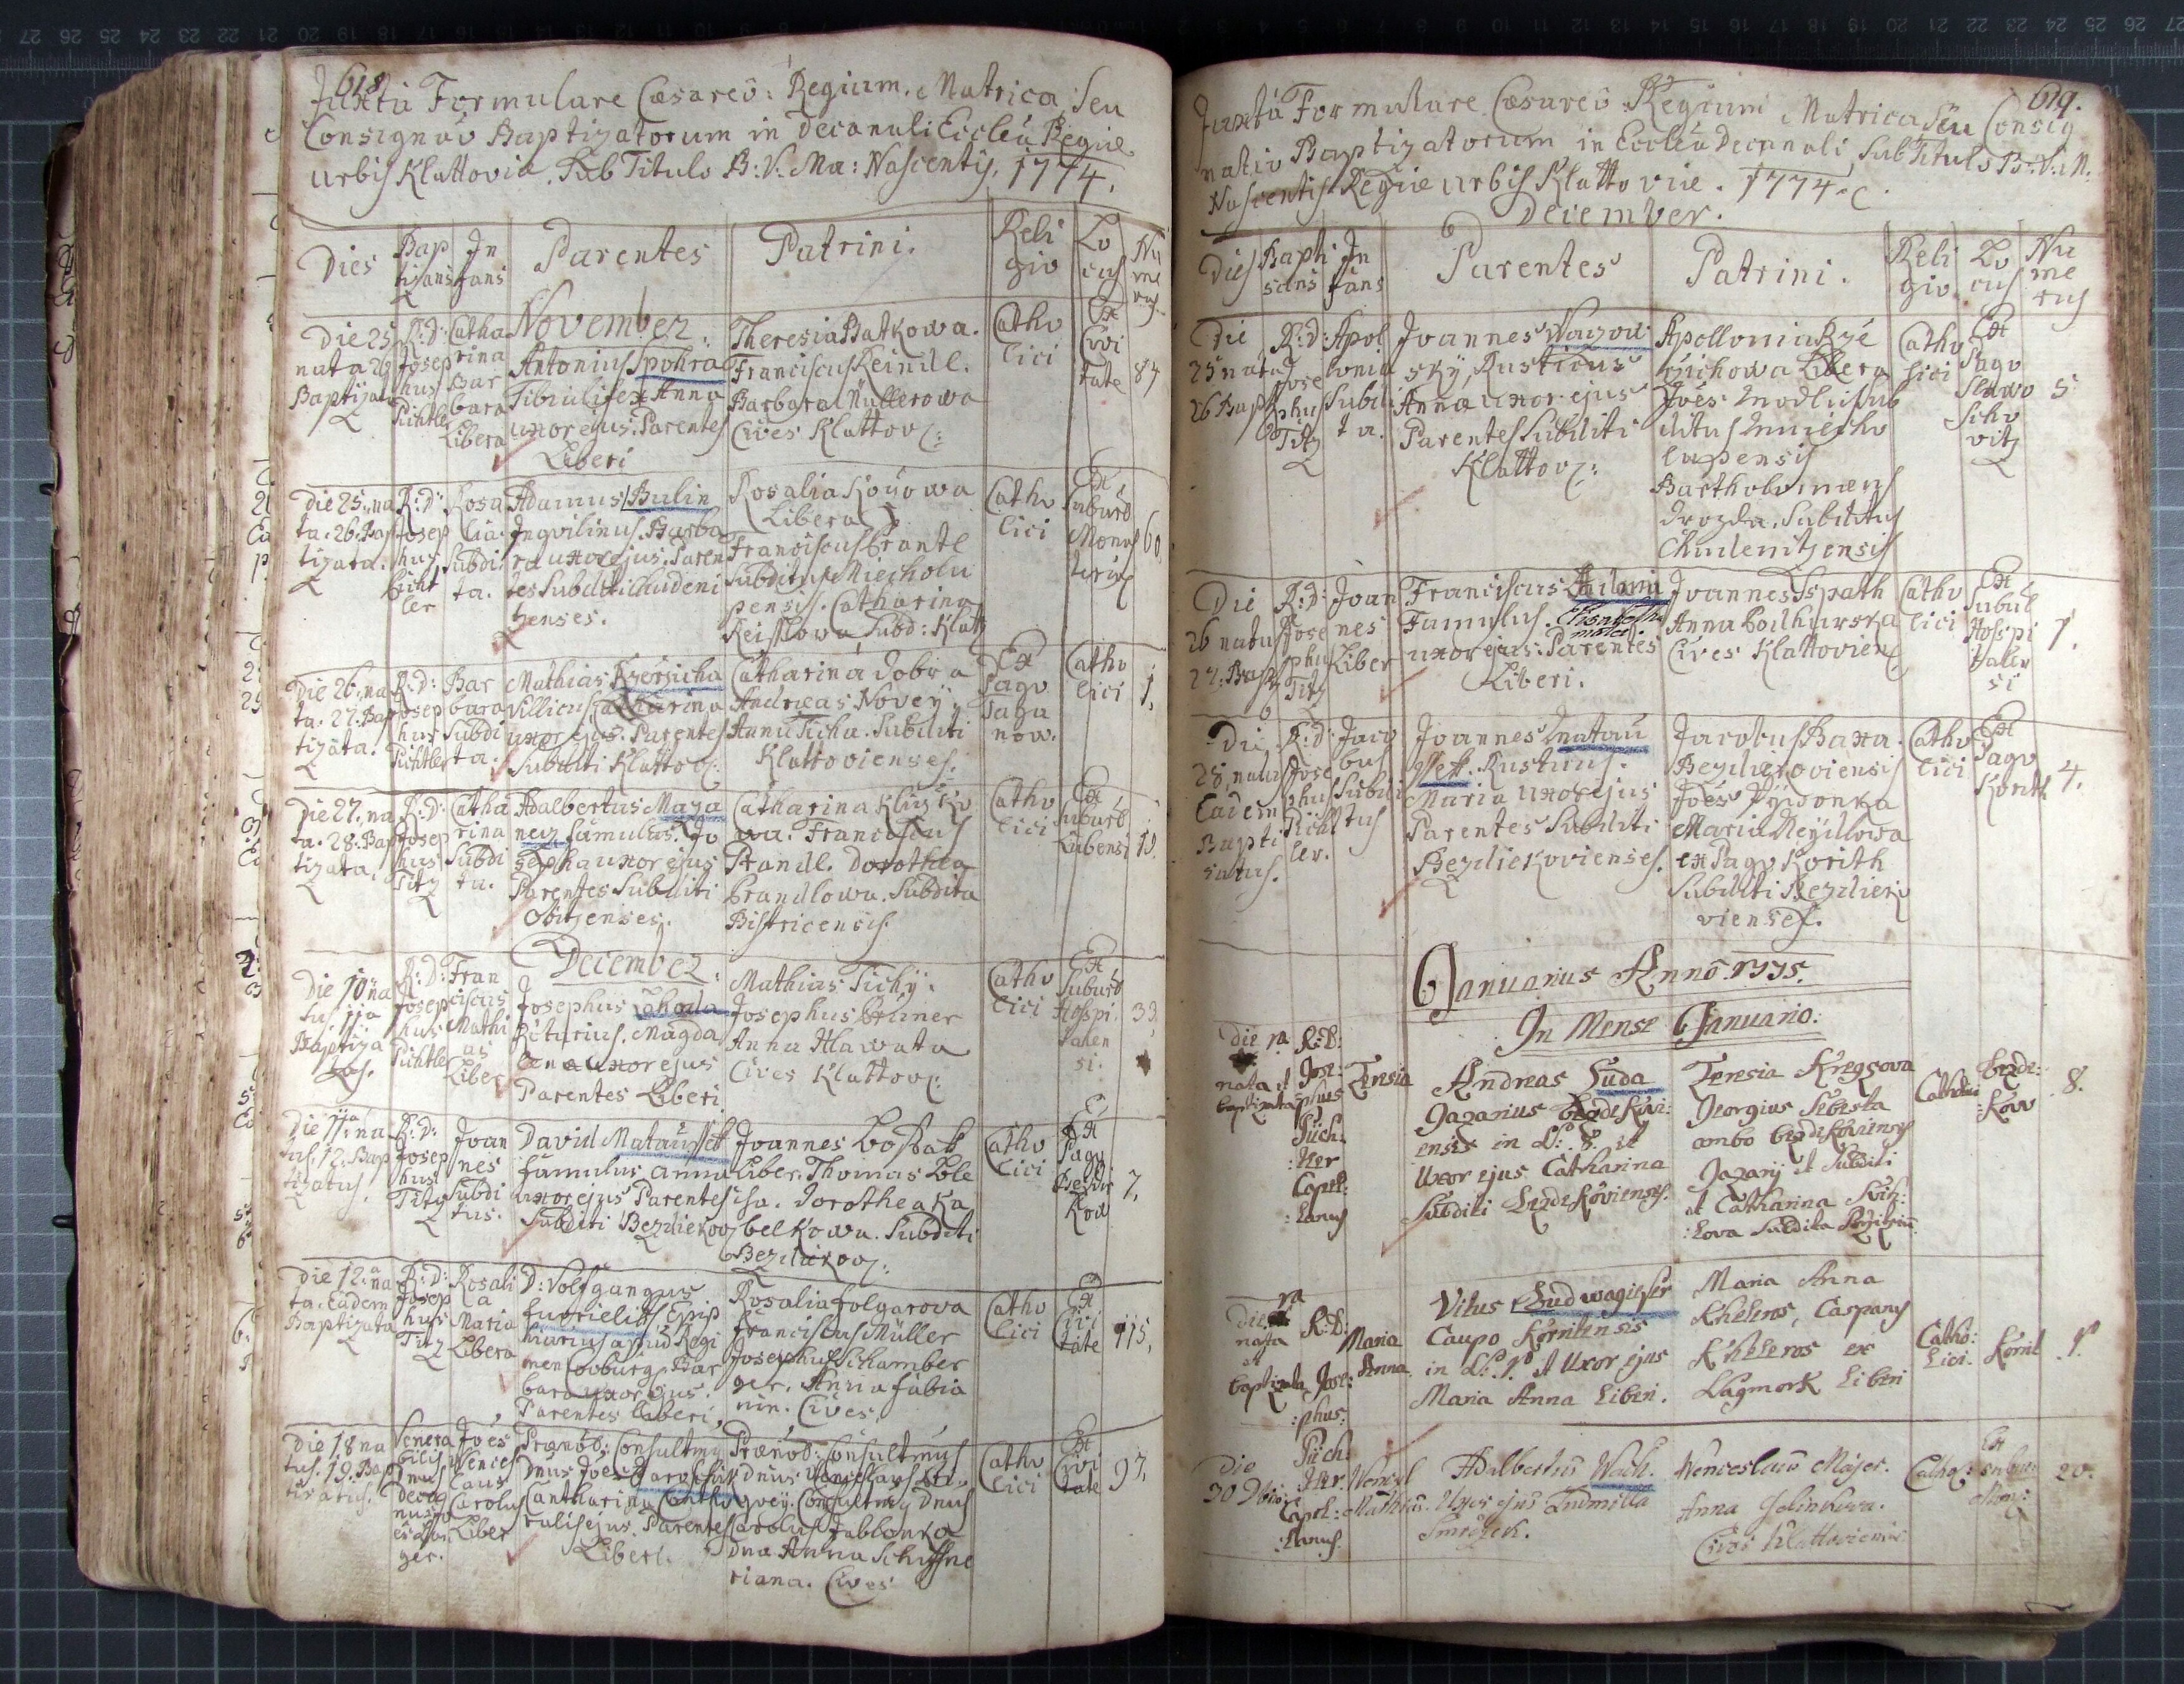 618.
Juxta Formulare Caesareo: Regium. Matrica. Seu
Consignao Baptizatorum in Decanali Ecclea Regiae
urbis Klattovia. Sub Titulo B: V: Ma: Nascentis. 1774.
Dies
Bap
tisans
In
fans
Parentes
Patrini.
Reli
gio
Lo
cus
Nu
me
rus
November.
Die 25
nata 26
Baptizata
R: D:
Josep
hus
Pichtler
Catha
rina
Bar
bara
Libera
Antonius Spohra
Tibialifex Anna
uxor ejus. Parentes
Liberi
Theresia Batkowa.
Franciscus Reindl.
Barbara Müllerowa
Cives Klattov:
Catho
lici
Ex
Civi
tate
87
Die 25. na
ta. 26. Bap
tizata.
R: D:
Josep
hus
Picht
ler
Rosa
lia.
Subdi
ta.
Adamus Bulin
Inqvilinus. Barba
ra uxor ejus. Paren
tes Subditi Chudeni
tzenses.
Rosalia
Libera
Franciscus Brantl
Subditus Miecholu
pensis. Catharina
Reisslowa Subd: Klatt
Catho
lici
Ex
Suburb
Monas
terien
60
Die 26. na
ta. 27. Bap
tizata.
R: D:
Josep
hus
Pichtler
Bar
bara
Subdi
ta.
Mathias
Villicus Catharina
uxor ejus. Parentes
Subditi Klattov:
Catharina Dobra
Andreas Novey.
Anna Ticha. Subditi
Klattovienses.
Ex
Pago
Taga
now.
Catho
lici
1.
Die 27. na
ta. 28. Bap
tizata.
R: D:
Josep
hus
Titz
Catha
rina
Subdi
ta.
Adalbertus Maza
nez famulus. Jo
sepha uxor ejus
Parentes Subditi
Obitzenses.
Catharina
Franciscus
Prandl. Dorothea
Brandlowa. Subdita
Bistricensis.
Catho
lici
Ex
Suburb
Lubensi
10.
December.
Die 10 na
tus 11a
Baptiza
tus.
R: D:
Josep
hus
Pichtler
Fran
ciscus
Mathi
as
Liber
Josephus
Magda
lena uxor ejus
Parentes Liberi
Mathias Tichy:
Josephus
Anna Hlawata
Cives Klattov:
Catho
lici
Ex
Suburb
Hospi
talen
si.
33
Die 11a na
tus. 12. Bap
tizatus.
R: D:
Josep
hus
Titz
Joan
nes
Subdi
tus.
David Mataussek
famulus. Anna
uxor ejus Parentes
Subditi Bezdiekov
Joannes Bostak
Liber. Thomas Kole
sa. Dorothea Ka
belkowa. Subditi
Bezdiekov:
Catho
lici
Ex
Pago
Bezdie
kow
7.
Die 12. na
ta. Eadem
Baptizata
R: D:
Josep
hus
Titz
Rosali
a
Maria
Libera
D: Volfgangus
apud Regi
men Cooburg. Bar
bara uxor ejus.
Parentes Liberi,
Rosalia Folgarova
Franciscus Müller
Josephus Schamber
ger. Anna Fabia
nin. Cives.
Catho
lici
Ex
Civi
tate
115.
Die 18 na
tus. 19. Bap
tizatus.
Venera
bilis
Dnus
Joes
Wences
laus
Carolus
Liber
Praenob: Consultmus
Dnus Joes
Catharina
ejus. Parentes
Liberi.
Praenob: Consultmus
Dnus Wenceslaus
Consultmus Dnus
Carolus Jablonka
Dna Anna Schiffne
riana. Cives
Catho
lici
Ex
Civi
tate
97.
619.
Juxta Formulare Caesareo Regium Matrica Seu Consig
natio Baptizatorum in Ecclea Decanali Sub Titulo B: V: M:
Nascentis Regiae urbis Klattoviae. 1774.
December.
Dies
Bapti
sans
In
fans
Parentes
Patrini.
Reli
gio
Lo
cus
Nu
me
rus
Die
25 nata
26 Bap
R: D:
Jose
phus
Titz
Apol
lonia
Subdi
ta.
Joannes
sky, Rusticus
Anna uxor ejus
Parentes Subditi
Klattov:
Apollonia
Libera
Joes Modl Sub
ditus Miecho
lupensis
Bartholomaeus
Drozda. Subditus
Chudenitzensis
Catho
lici
Ex
Pago
Slawo
schо
vitz
5
Die
26 natus
27. Bap
R: D:
Jose
phus
Titz
Joan
nes
Liber
Franciscus
Famulus. Elisabetha
uxor ejus. Parentes
Liberi.
Joannes Spath
Anna
Cives Klattovien
Catho
lici
Ex
Subu
Hospi
talen
si
1.
Die
28. natus
Eadem
Bapti
satus.
R: D:
Jose
phus
Pichtl
ler.
Jaco
bus
Subdi
tus
Joannes Matau
ssek. Rusticus.
Maria uxor ejus
Parentes Subditi
Bezdiekovienses.
Jacobus Baxa.
Bezdiekoviensis
Joes Piwonka
Maria Reyillowa
ex Pago Korith
Subditi Bezdieko
vienses.
Catho
lici
Ex
Pago
Korith
4.
Januarius Anno. 1775.
In Mense Januario:
Die 1a
nata et
baptizata
R: D:
Jose:
phus
Piich:
tler
Capel:
lanus
Teresia
Andreas Suda
Gazarius Bezdekovi:
ensis in N: 8. et
Uxor ejus Catharina
Subditi Bezdekovienses.
Teresia Kregsova
Georgius Sebesta
ambo Bezdekovienses
Gazarij et Subditi
et Catharina Svih:
lova Subdita
Catholici
Bezde:
kow
8.
Die 1a
nata
et
baptizata
R: D:
Jose:
phus:
Piich:
tler
Capel:
lanus.
Maria
Anna
Vitus Ludwagisser
Caupo Körnitensis
in N: 1 et Uxor ejus
Maria Anna Liberi.
Maria Anna
Kheleros, Casparus
Kheleros ex
Liberi
Catho:
lici.
Körnt
1.
Die
30 Xbris
Wencesl
Mathias.
Adalbertus Wach.
Uxor ejus Ludmilla
Smrczek.
Wenceslaus Majer.
Anna Jelinkova.
Cives Klattovienses
Catho:
Ex
subur:
Mon:
20.